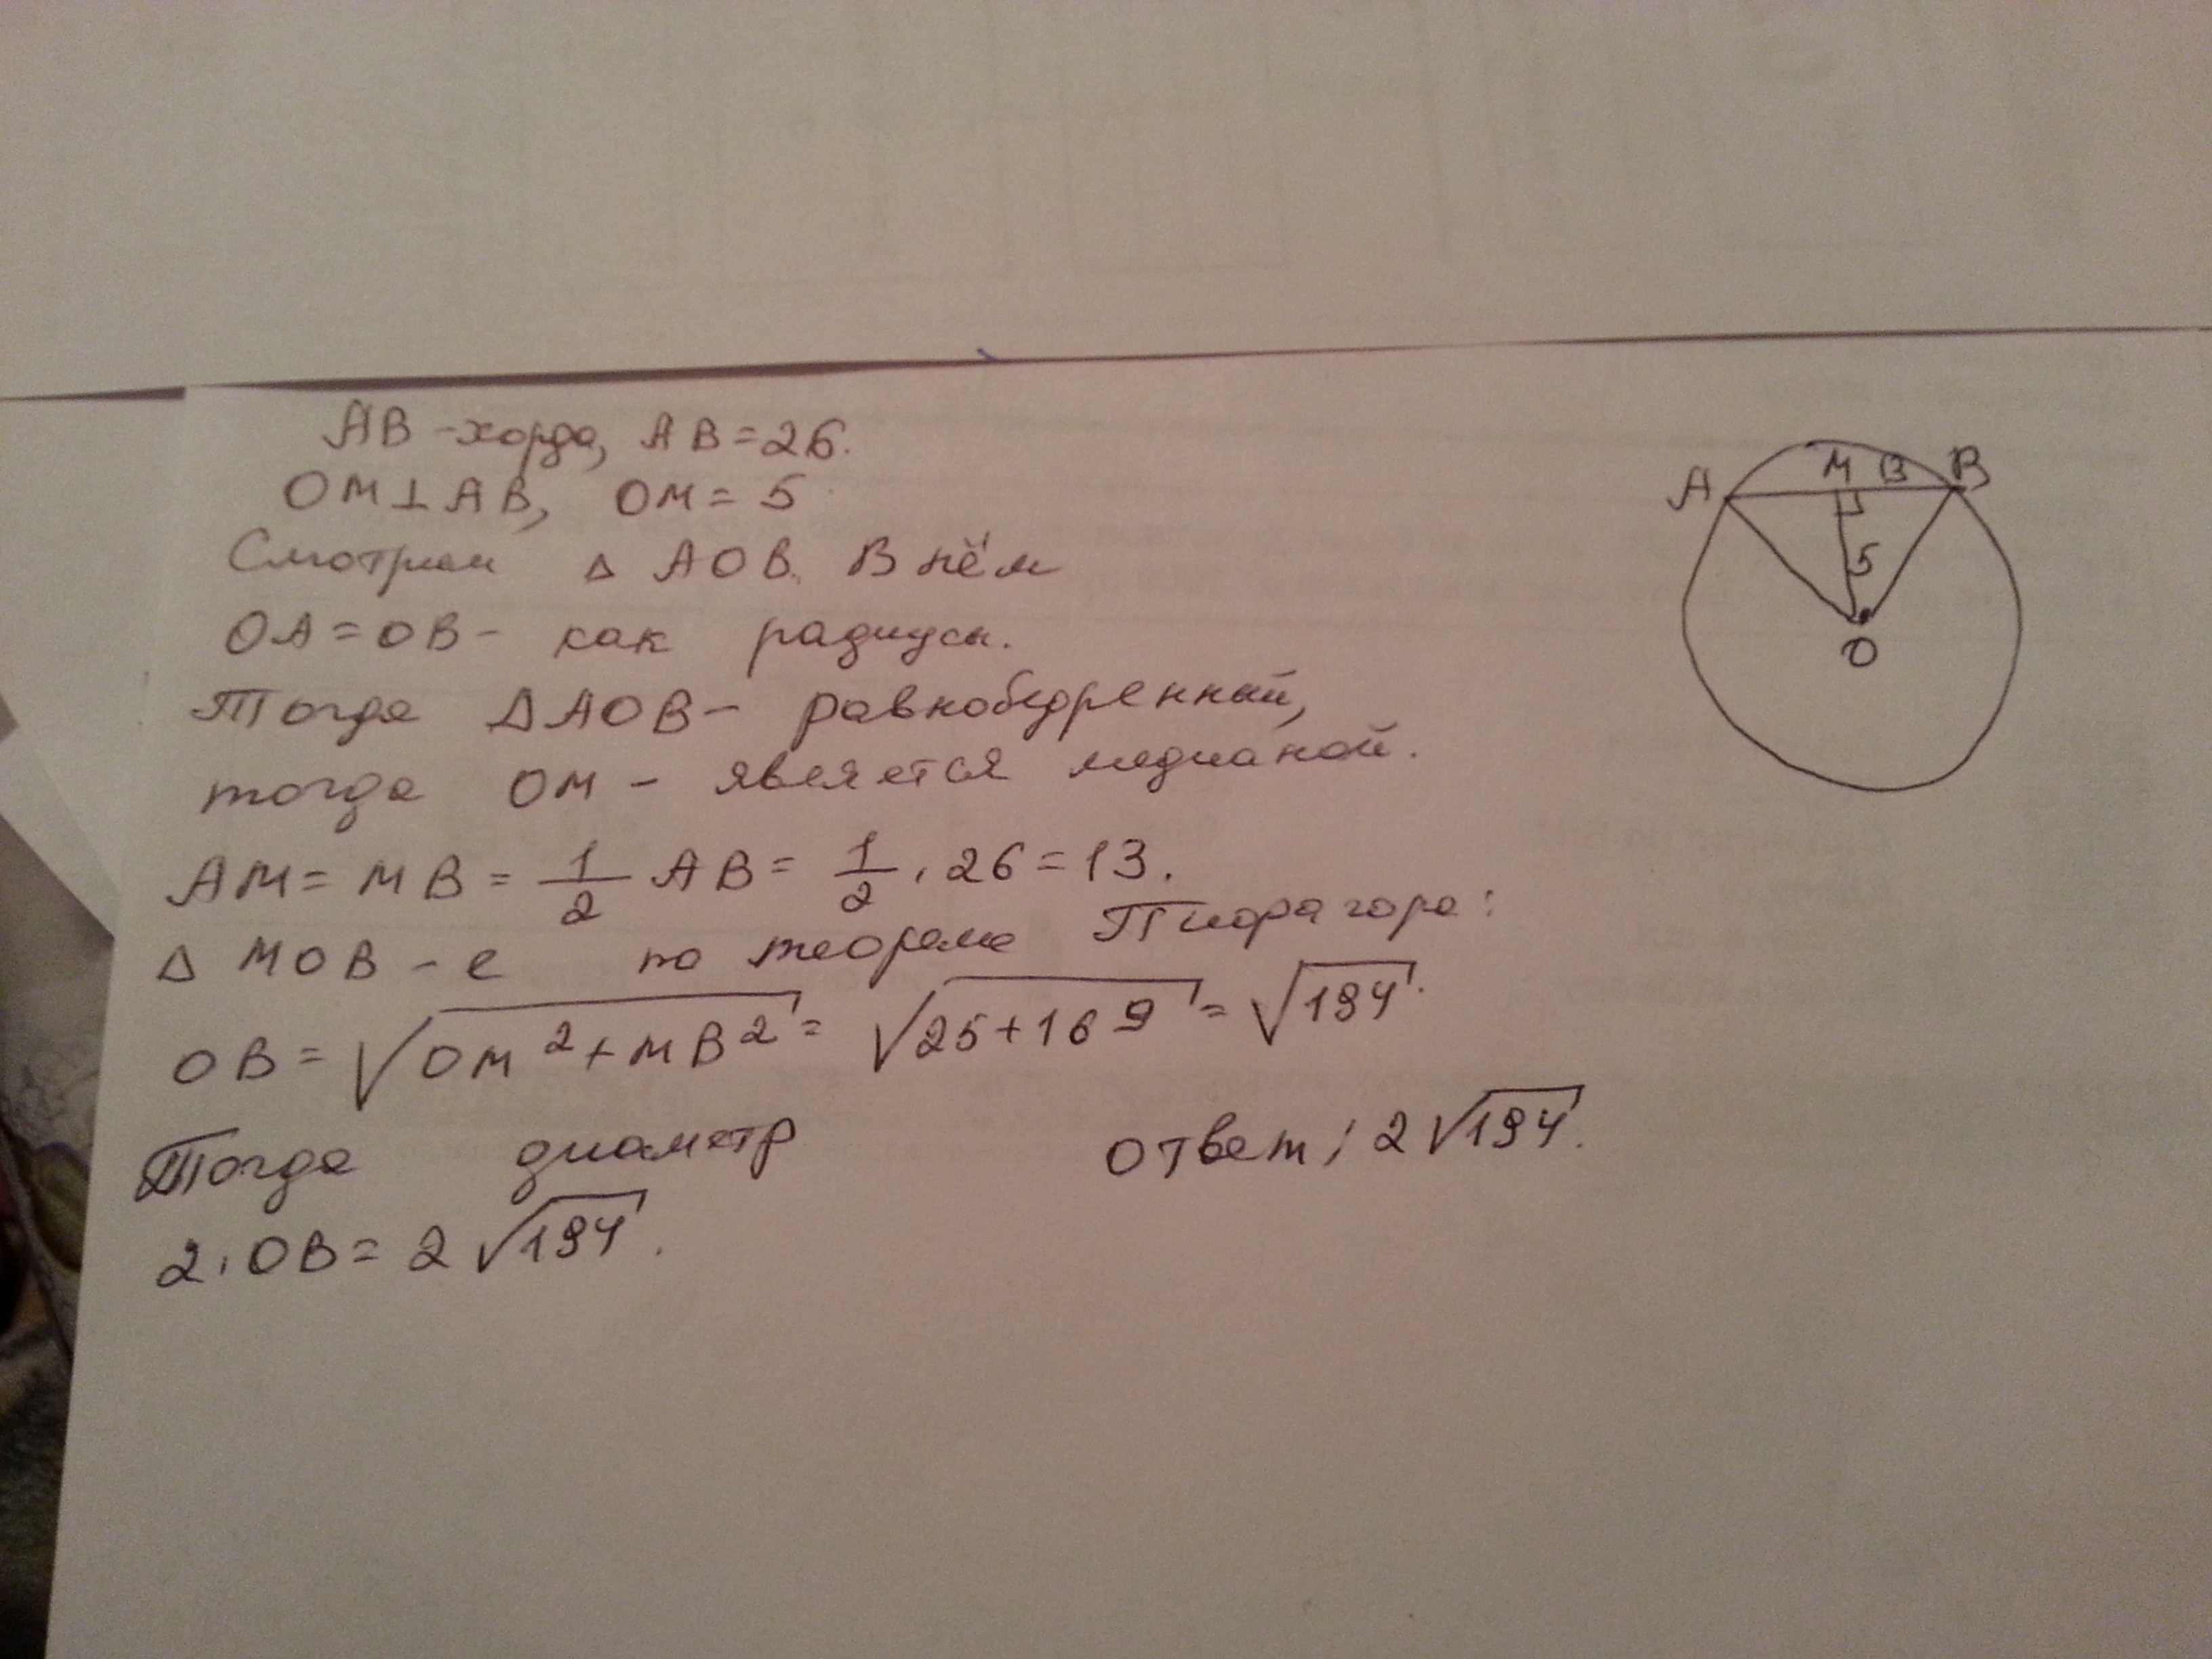 AB - хорда, AB = 26.
OM ⊥ AB, OM = 5
Смотрим △ AOB. В нём
OA = OB - как радиусы.
Тогда △AOB - равнобедренный,
тогда OM - является медианой.
AM = MB = 1/2 AB = 1/2 · 26 = 13.
△ MOB - е по теореме Пифагора:
OB = √(OM² + MB²) = √(25+169) = √194.
Тогда диаметр
2 · OB = 2√194.
Ответ: 2√194.
A M 13 B
5
O